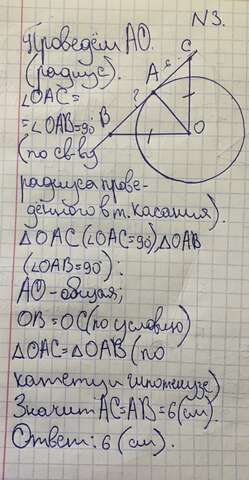 N3.
1) Проведём АО.
(радиус).
∠OAC=
=∠OAB=90°
(по св-ву
радиуса прове-
дённого в т. касания).
△OAC(∠OAC=90°)△OAB
(∠OAB=90°):
AO-общая;
OB=OC(по условию)
△OAC=△OAB(по
катету и гипотенузе)
Значит AC=AB=6(см).
Ответ: 6(см).
C
6
A
?
B
O